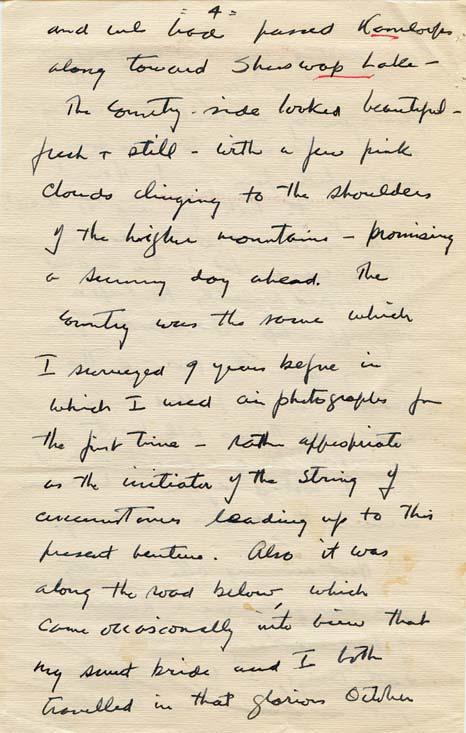 = 4 =
and we had passed Kamloops
along toward Shuswap Lake –
The country-side looked beautiful –
fresh + still – with a few pink
clouds clinging to the shoulders
of the higher mountains – promising
a sunny day ahead. The
country was the same which
I surveyed 9 years before in
which I used air photographs for
the first time – rather appropriate
as the initiator of the string of
circumstances leading up to this
present venture. Also it was
along the road below, which
came occasionally into view that
my sweet bride and I both
travelled in that glorious October